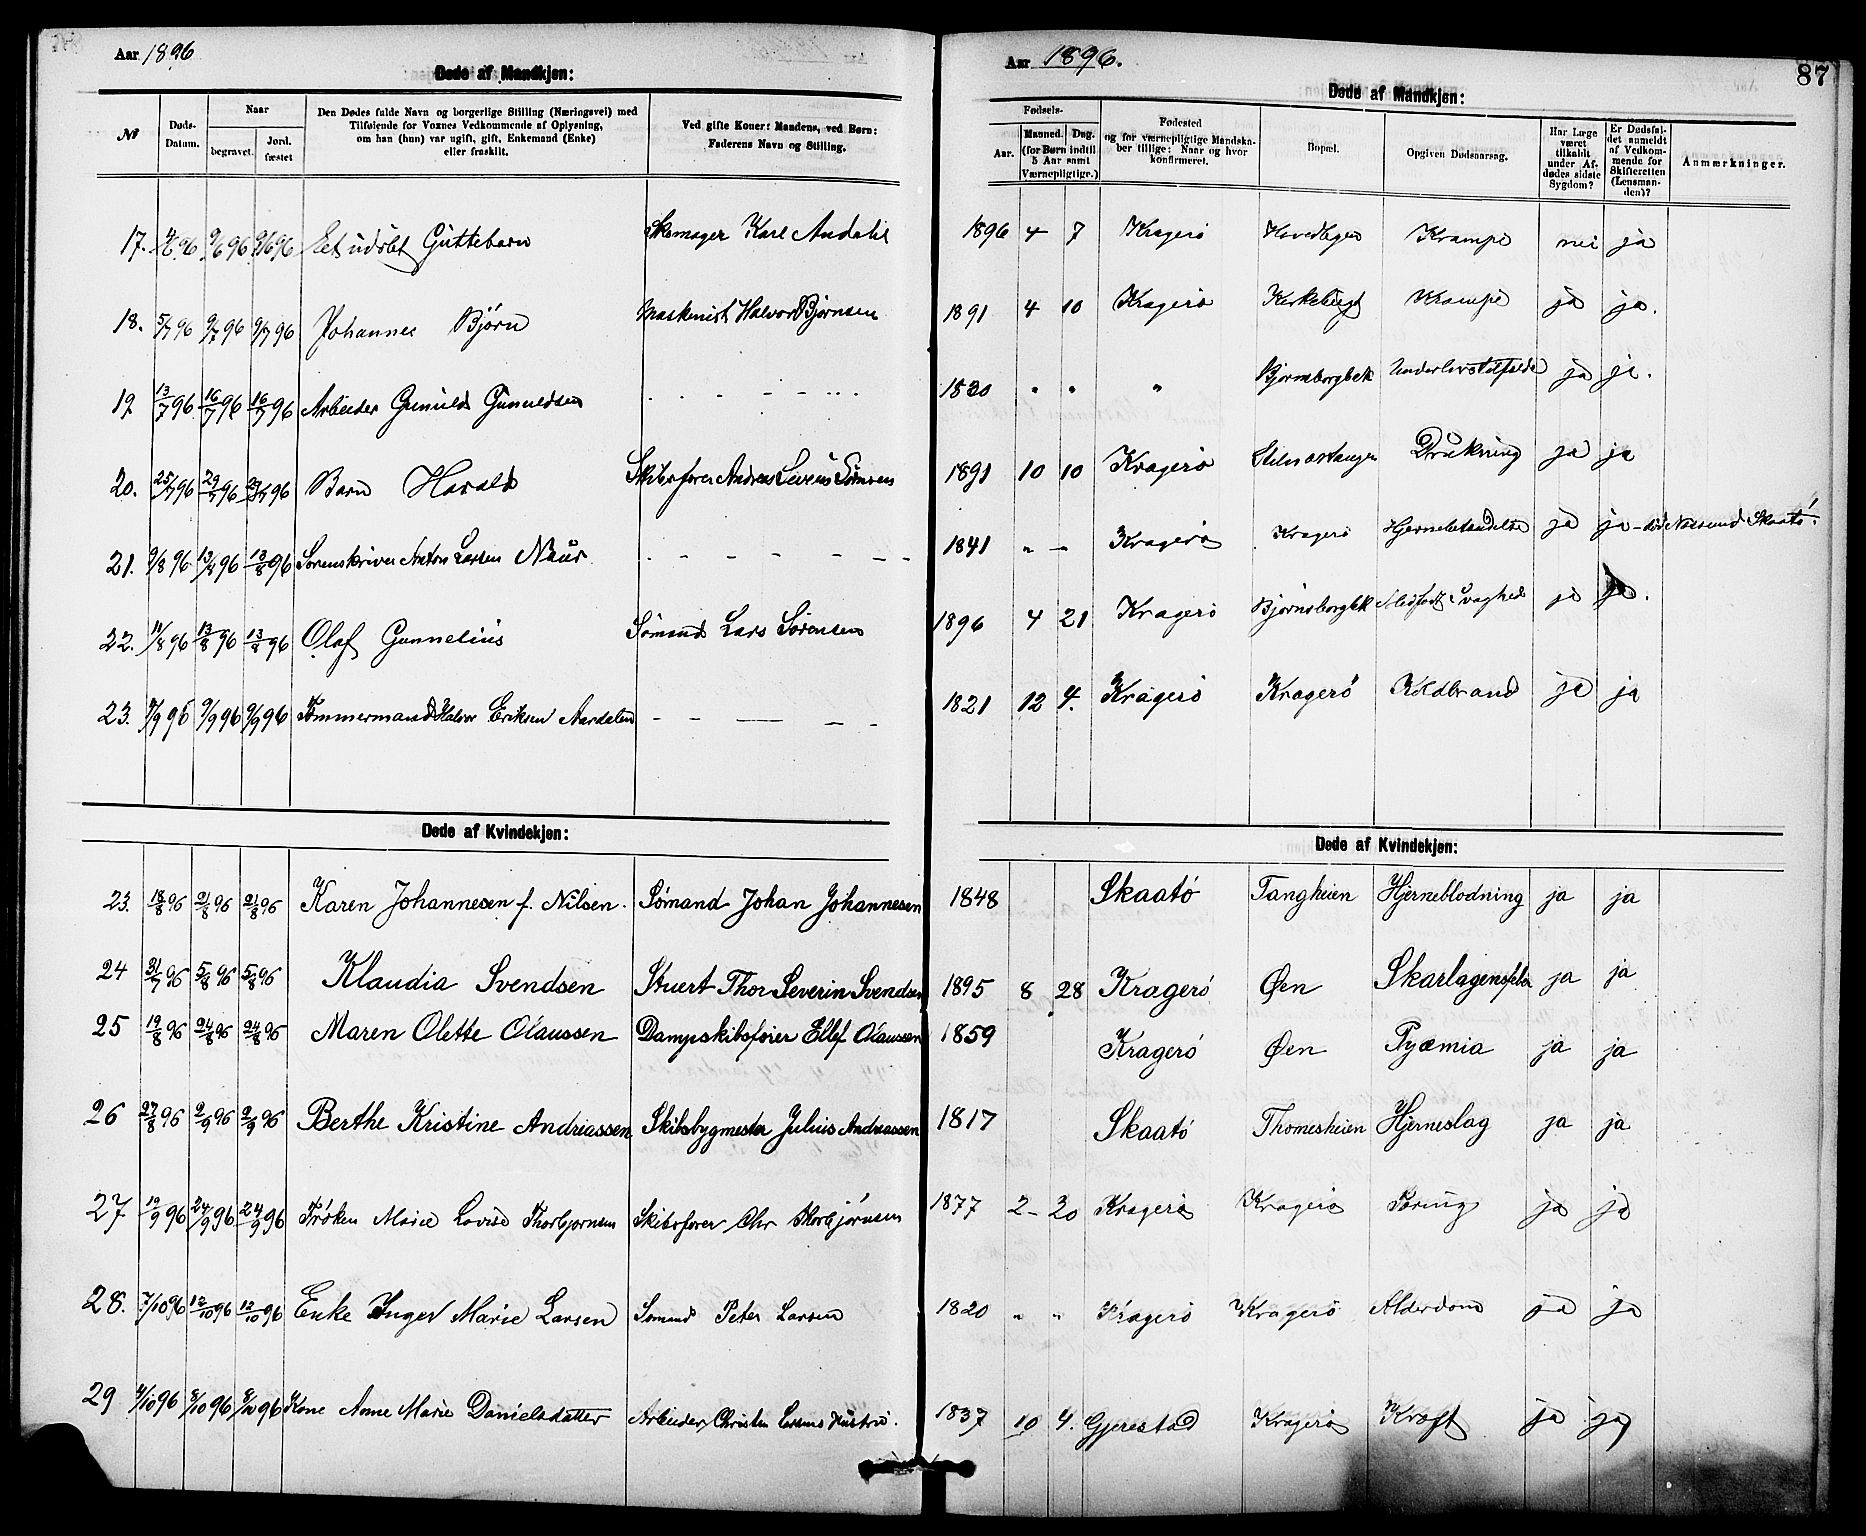 Aar 1896
Døde af Mandkjøn:
№
Døds-Datum.
Naar
begravet.
Jord. fæstet
Den Dødes fulde Navn og borgerlige Stilling (Næringsvei) med
Tilføiende for Voxnes Vedkommende af Oplysning,
om han (hun) var ugift, gift, Enkemand (Enke)
eller fraskilt.
Ved gifte Koner: Mandens, ved Børn:
Faderens Navn og Stilling.
Aar 1896.
87
Døde af Mandkjøn:
Fødsels-
Aar.
Maaned. Dag.
(for Børn indtil
5 Aar samt
Værnepligtige.)
Fødested
og for værnepligtige Mandska-
ber tillige: Naar og hvor
konfirmeret.
Bopæl.
Opgiven Dødsaarsag.
Har Læge
været
tilkaldt
under Af-
dødes sidste
Sygdom?
Er Dødsfal-
det anmeldt
af Vedkom-
mende for
Skifteretten
(Lensman-
den)?
Anmærkninger.
17. 4/6 96 9/6 96 9/6 96 Et udøbt Guttebarn Skomager Karl Andahl 1896 4 7 Kragerö Krampe nei ja
18. 5/7 96 9/7 96 9/7 96 Johannes Bjørn Maskinist Halvor Bjørnsen 1891 4 10 Kragerö Krampe ja ja.
19 13/7 96 16/7 96 16/7 96 Arbeider Gunuld Gunuldsen 1830 " " " Bjørnsborgbek ja ja.
20. 25/7 96 29/7 96 29/7 96 Barn Harald Skibsfører Andreas 1891 10 10 Kragerö Drukning ja ja
21. 9/8 96 13/8 96 13/8 96 Sorenskriver Anton Larsen Naur 1841 " - Kragerö Kragerö Hjernebetændelse ja ja - Skaatö.
22. 11/8 96 13/8 96 13/8 96 Olaf Gunnelius Sømand Lars Sørensen 1896 4 21 Kragerö Bjørnsborgbek Medfødt Svaghed ja ja.
23. 7/9 96 9/9 96 9/9 96 Tømmermand Halvor Eriksen Aardalen 1821 12 4. Kragerö Kragerö Koldbrand ja ja
Døde af Kvindekjøn:
Døde af Kvindekjøn:
23. 18/8 96 21/8 96 21/8 96 Karen Johannesen f. Nilsen. Sømand Johan Johannesen 1848 Skaatö Tangheien Hjerneblodning ja ja
24 31/7 96 5/8 96 5/8 96 Klaudia Svendsen Stuert Thor Severin Svendsen 1895 8 28 Kragerö Øen Skarlagensfeber ja ja
25 19/8 96 24/8 96 24/8 96 Maren Olette Olaussen Dampskibsfører Ellef Olaussen 1859 Kragerö Øen Pyæmia ja ja
26 27/8 96 2/9 96 2/9 96 Berthe Kristine Andriassen Skibsbygmester Julius Andreassen 1817 Skaatö Thomesheien Hjerneslag ja ja
27 19/9 96 24/9 96 24/9 96 Frøken Marie Lovise Thorbjørnsen Skibsfører Chr Thorbjørnsen 1877 2- 20 Kragerö Kragerö Tæring ja ja
28. 7/10 96 12/10 96 12/10 96 Enke Inger Marie Larsen Sømand Peter Larsen 1820 " " Kragerö Kragerö Alderdom ja ja
29 4/10 96 8/10 96 8/10 96 Kone Anne Marie Danielsdatter Arbeider Christen Hustru. 1837 10 4. Gjerestad Kragerö Kræft ja ja